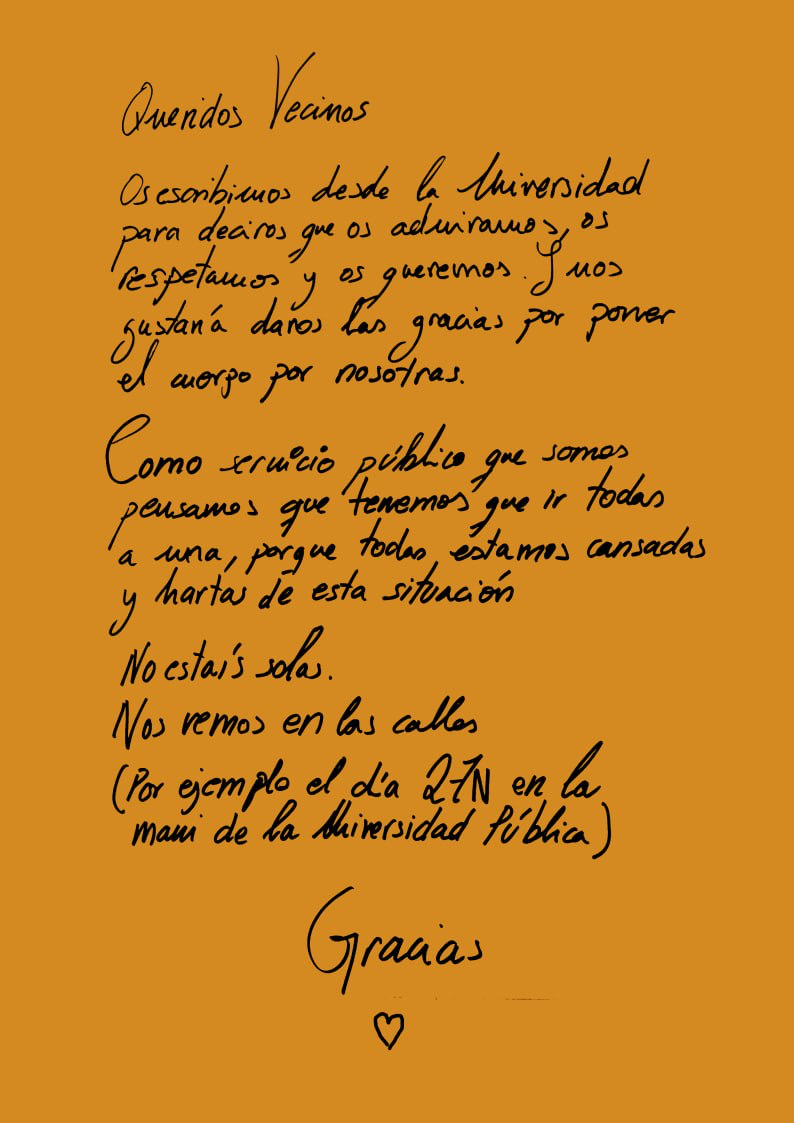 Queridos Vecinos
Os escribimos desde la Universidad
para deciros que os admiramos, os
respetamos y os queremos. Y nos
gustaría daros las gracias por poner
el cuerpo por nosotras.
Como servicio público que somos
pensamos que tenemos que ir todas
a una, porque todas estamos cansadas
y hartas de esta situación
No estaís solas.
Nos vemos en las calles
(Por ejemplo el día 27N en la
mani de la Universidad Pública)
Gracias